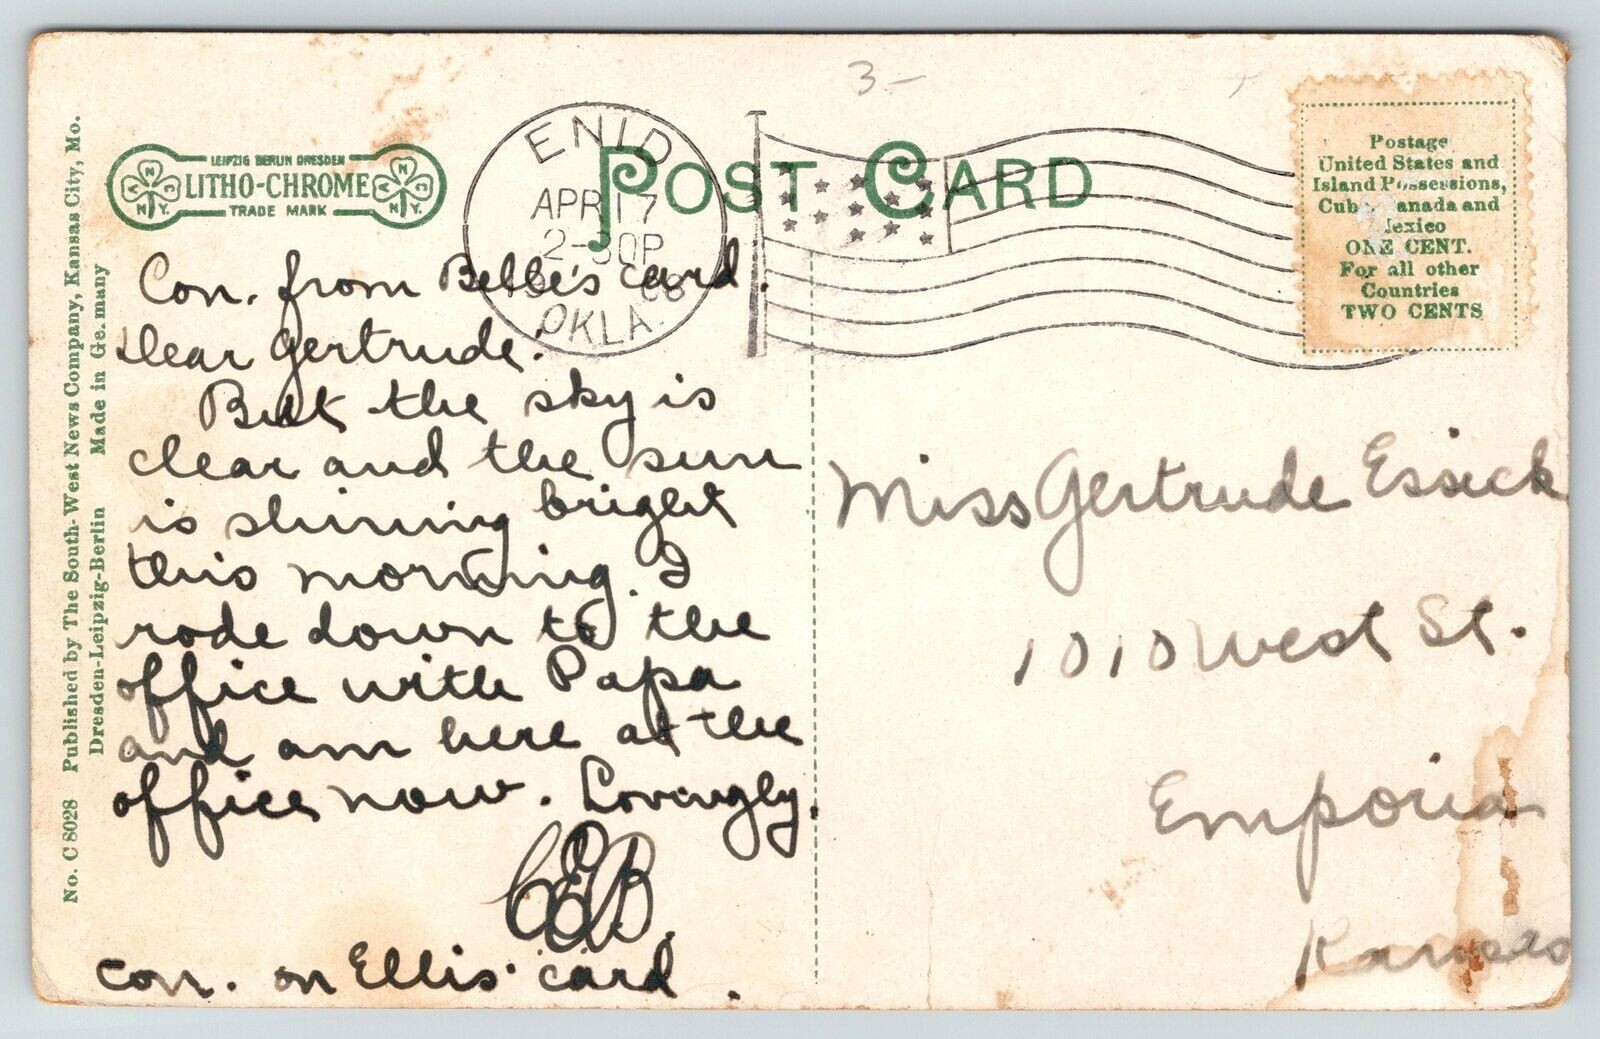 3-
POST CARD
LEIPZIG BERLIN DRESDEN
LITHO-CHROME
TRADE MARK
ENID
APR 17
2-30P
OKLA.
Postage
United States and
Island Possessions,
Cuba, Canada and
Mexico
ONE CENT.
For all other
Countries
TWO CENTS
No. C 8028 Published by The South-West News Company, Kansas City, Mo.
Dresden-Leipzig-Berlin Made in Germany
Con. from Belle's card.
Dear Gertrude:
But the sky is
clear and the sun
is shining bright
this morning. I
rode down to the
office with Papa
and am here at the
office now. Lovingly.
CEB.
con. on Ellis' card.
Miss Gertrude Essick
1010 West St.
Emporia
Kansas